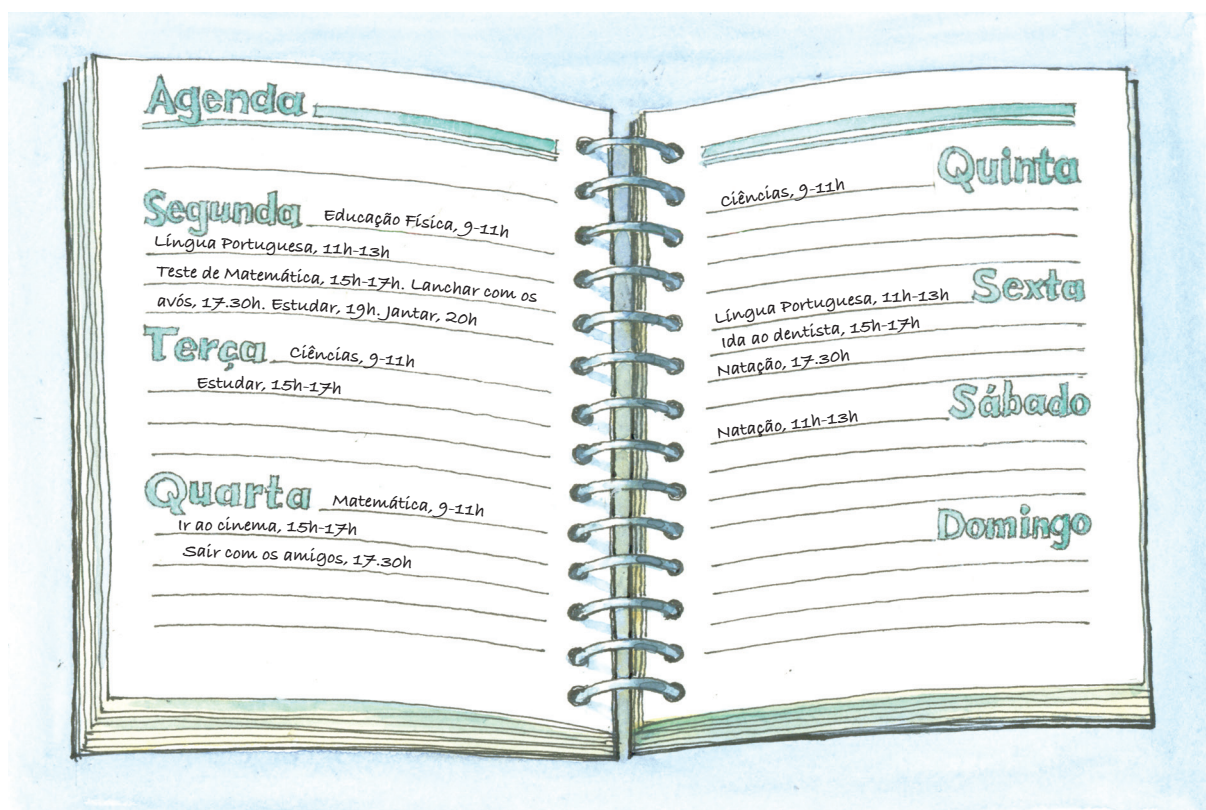 Agenda
Segunda Educação Física, 9-11h
Língua Portuguesa, 11h-13h
Teste de Matemática, 15h-17h. Lanchar com os
avós, 17.30h. Estudar, 19h. Jantar, 20h
Terça Ciências, 9-11h
Estudar, 15h-17h
Quarta Matemática, 9-11h
Ir ao cinema, 15h-17h
Sair com os amigos, 17.30h
Quinta
Ciências, 9-11h
Sexta
Língua Portuguesa, 11h-13h
Ida ao dentista, 15h-17h
Natação, 17.30h
Sábado
Natação, 11h-13h
Domingo